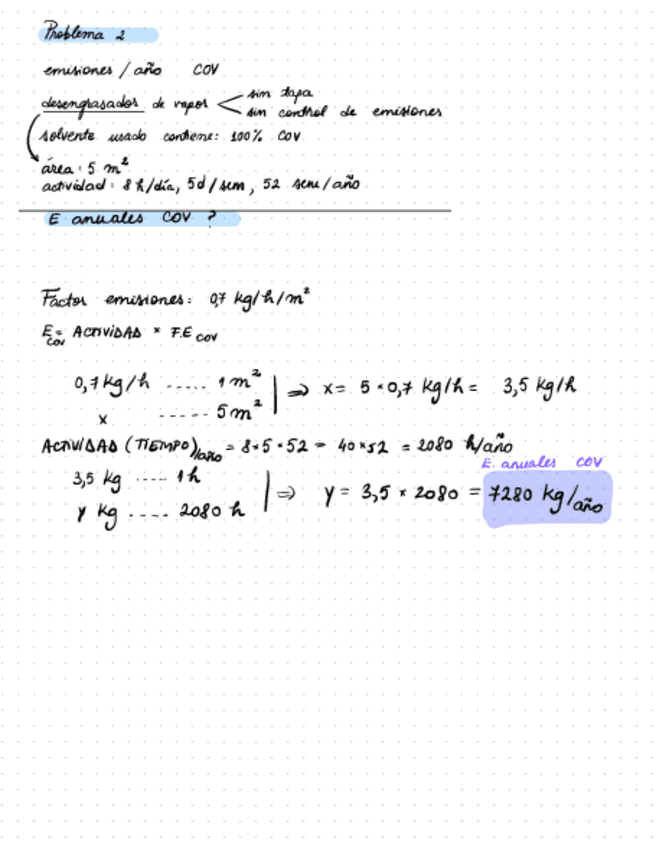 Problema 2
emisiones / año COV
desengrasador de vapor < sin tapa
sin control de emisiones
solvente usado contiene: 100% COV
área: 5 m²
actividad: 8 h/día, 5d/sem, 52 sem/año
E anuales COV ?
Factor emisiones: 0,7 kg/h/m²
E COV = ACTIVIDAD × F.E COV
0,7 kg/h ..... 1 m²
x ----- 5 m²
⇒ x = 5 · 0,7 kg/h = 3,5 kg/h
ACTIVIDAD (TIEMPO)/año = 8·5·52 = 40×52 = 2080 h/año
E. anuales COV
3,5 kg ..... 1 h
y kg .... 2080 h
⇒ y = 3,5 × 2080 = 7280 kg/año